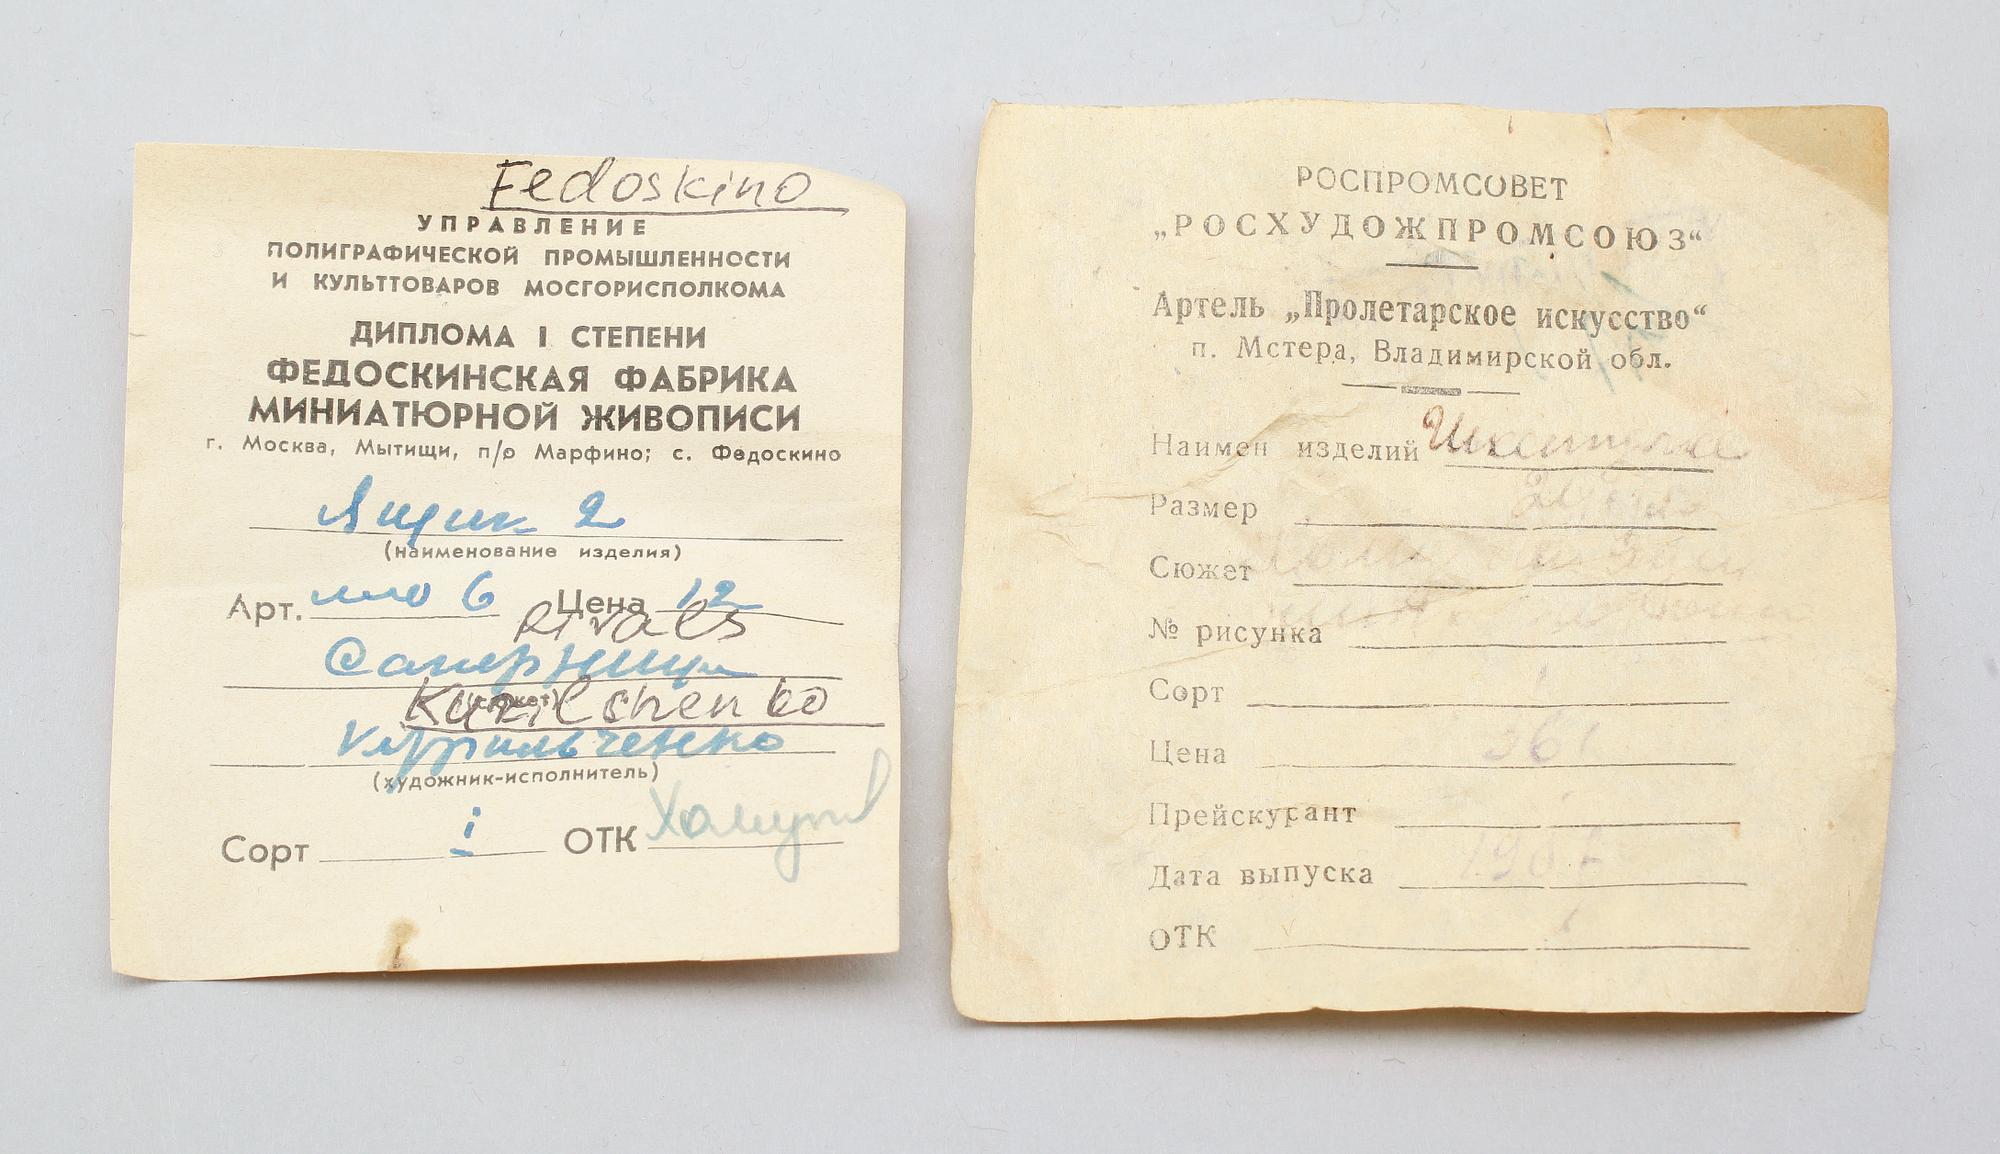 Fedoskino
УПРАВЛЕНИЕ
ПОЛИГРАФИЧЕСКОЙ ПРОМЫШЛЕННОСТИ
И КУЛЬТТОВАРОВ МОСГОРИСПОЛКОМА
ДИПЛОМА I СТЕПЕНИ
ФЕДОСКИНСКАЯ ФАБРИКА
МИНИАТЮРНОЙ ЖИВОПИСИ
г. Москва, Мытищи, п/о Марфино; с. Федоскино
Ящик 2
(наименование изделия)
Арт. 6 Цена 12
Rivals
Соперницы
(сюжет)
Kurilshenko
Курильченко
(художник-исполнитель)
Сорт i ОТК
РОСПРОМСОВЕТ
„РОСХУДОЖПРОМСОЮЗ“
Артель „Пролетарское искусство“
п. Мстера, Владимирской обл.
Наимен изделий Шкатулка
Размер
Сюжет
№ рисунка
Сорт
Цена
Прейскурант
Дата выпуска
ОТК